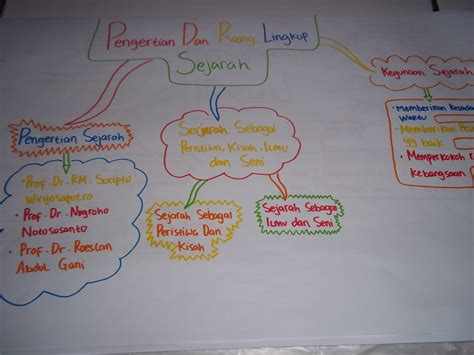 Pengertian Dan Ruang Lingkup
Sejarah
Pengertian Sejarah
· Prof. Dr. RM. Sucipto
Wirjosaputro
· Prof. Dr. Nugroho
Notosusanto
· Prof. Dr. Roeslan
Abdul Gani
Sejarah Sebagai
Peristiwa, Kisah, Ilmu
dan Seni
Sejarah Sebagai
Peristiwa Dan
Kisah
Sejarah Sebagai
Ilmu dan Seni
Kegunaan Sejarah
· Memberikan
Waktu
· Memberikan
yg baik
· Memperkokoh
Kebangsaan